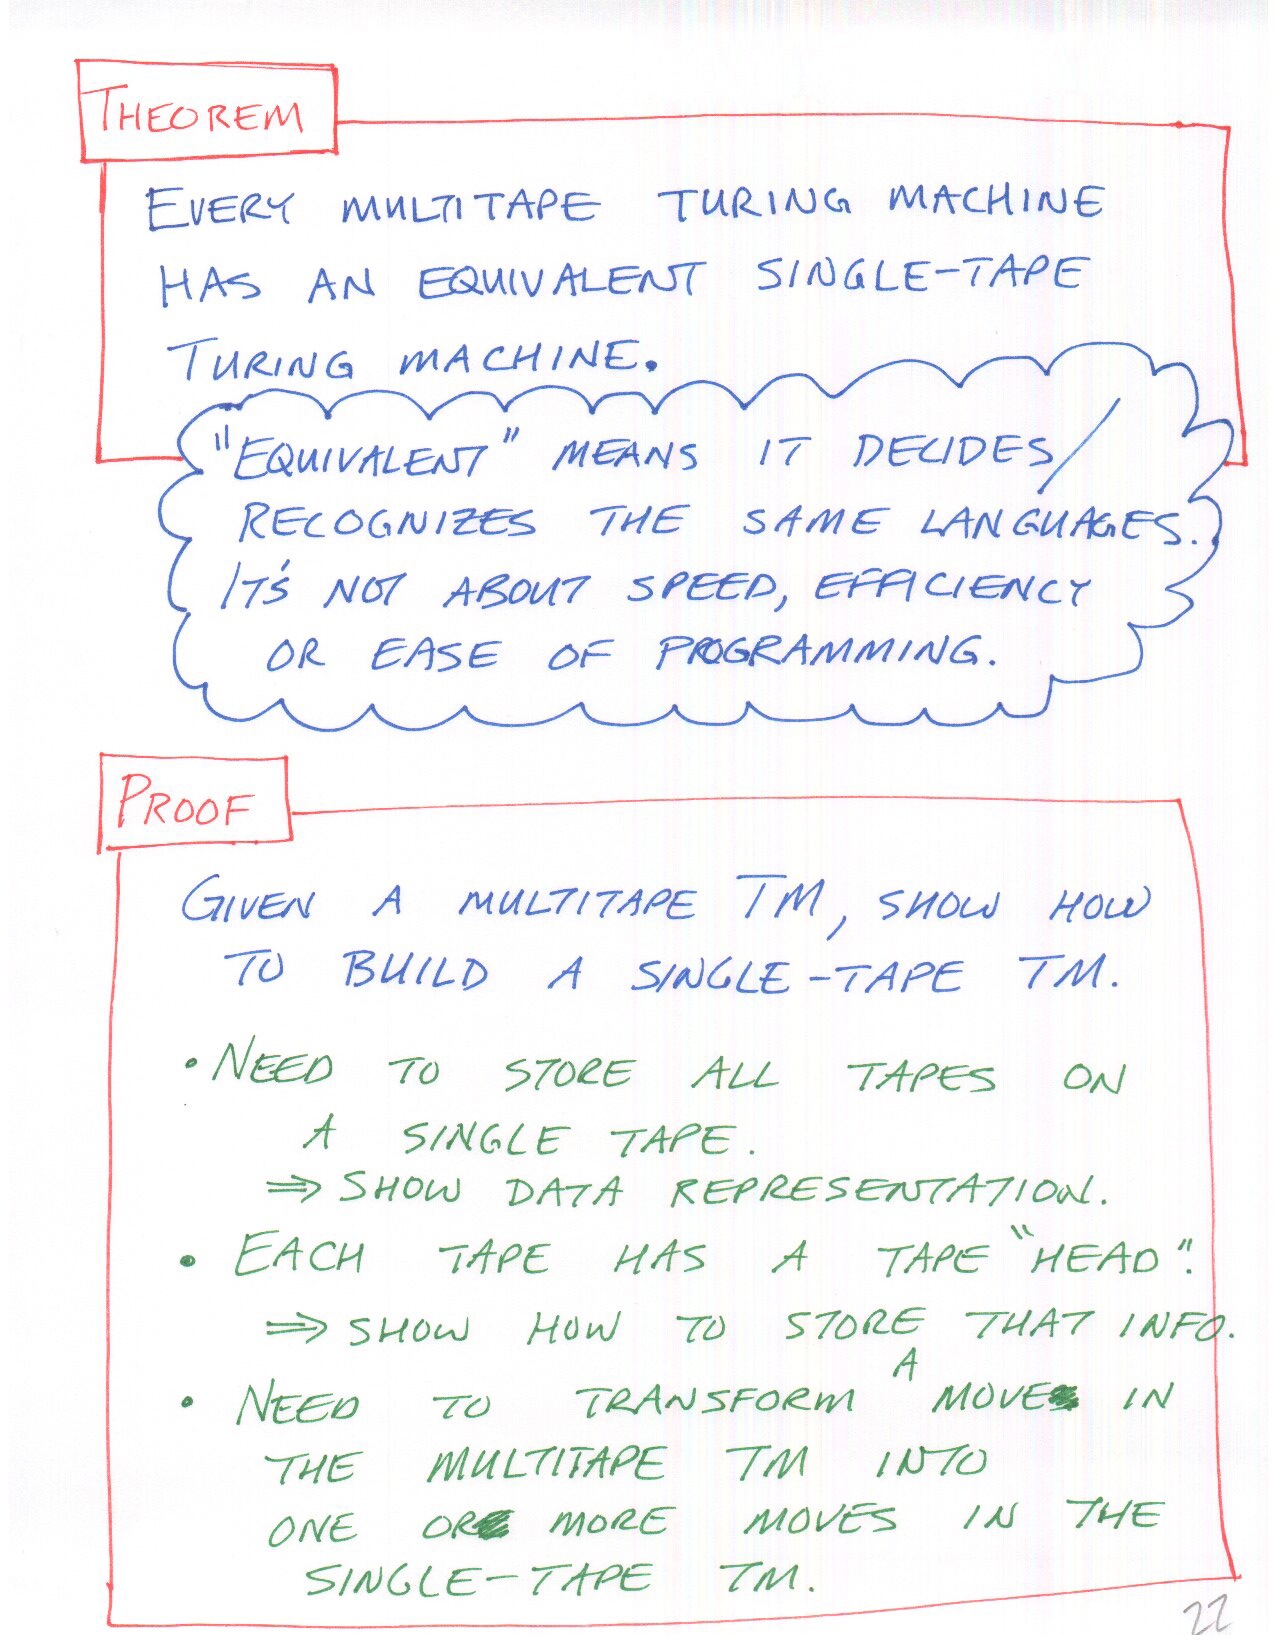 THEOREM
EVERY MULTITAPE TURING MACHINE
HAS AN EQUIVALENT SINGLE-TAPE
TURING MACHINE.
"EQUIVALENT" MEANS IT DECIDES/
RECOGNIZES THE SAME LANGUAGES.
IT'S NOT ABOUT SPEED, EFFICIENCY
OR EASE OF PROGRAMMING.
PROOF
GIVEN A MULTITAPE TM, SHOW HOW
TO BUILD A SINGLE-TAPE TM.
• NEED TO STORE ALL TAPES ON
A SINGLE TAPE.
⇒ SHOW DATA REPRESENTATION.
• EACH TAPE HAS A TAPE "HEAD".
⇒ SHOW HOW TO STORE THAT INFO.
• NEED TO TRANSFORM A MOVE IN
THE MULTITAPE TM INTO
ONE OR MORE MOVES IN THE
SINGLE-TAPE TM.
22